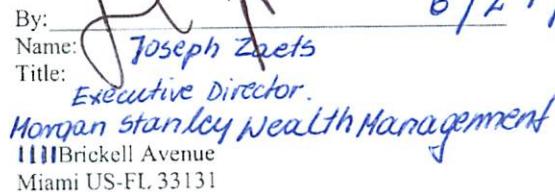 By:
Name: Joseph Zaets
Title:
Executive Director.
Morgan Stanley Wealth Management
1111 Brickell Avenue
Miami US-FL 33131